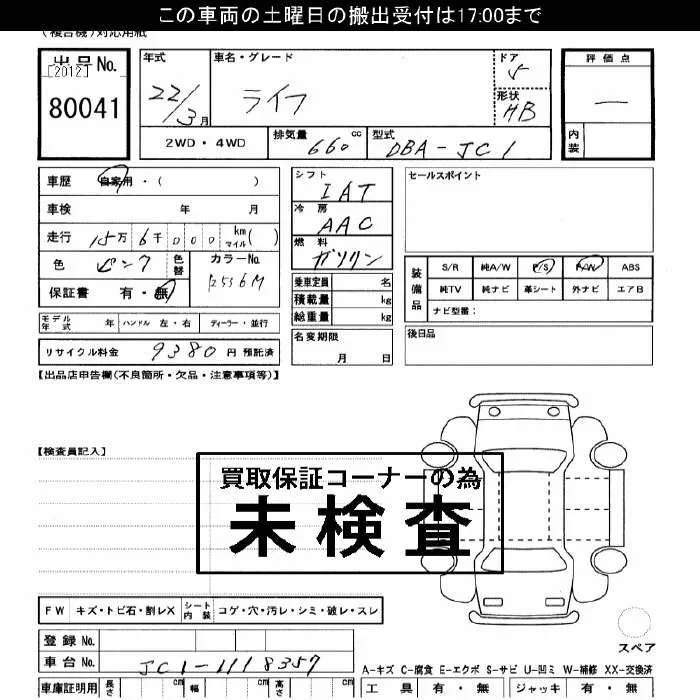 この車両の土曜日の搬出受付は17:00まで
(複合機)対応用紙
出品No.
[2012]
80041
年式
22/3月
車名・グレード
ライフ
ドア
5
形状
HB
評価点
—
内装
2WD・4WD
排気量
660
cc
型式
DBA-JC1
車歴
自家用・(　)
車検
年　月
走行
15万6千000
km
マイル
(　)
色
ピンク
色替
カラーNo.
R556M
保証書
有・無
モデル年式
年
ハンドル
左・右
ディーラー・並行
リサイクル料金
9380
円 預託済
シフト
IAT
冷房
AAC
燃料
ガソリン
乗車定員
名
積載量
kg
総重量
kg
名変期限
月　日
セールスポイント
装備品
S/R
純A/W
P/S
P/W
ABS
純TV
純ナビ
革シート
外ナビ
エアB
ナビ型番:
後日品
【出品店申告欄(不良箇所・欠品・注意事項等)】
【検査員記入】
買取保証コーナーの為
未検査
FW
キズ・トビ石・割レX
シート内装
コゲ・穴・汚レ・シミ・破レ・スレ
スペア
登録No.
車台No.
JC1-1118357
A-キズ C-腐食 E-エクボ S-サビ U-凹ミ W-補修 XX-交換済
車庫証明用
長さ
cm
幅
cm
高さ
cm
工具
有・無
ジャッキ
有・無